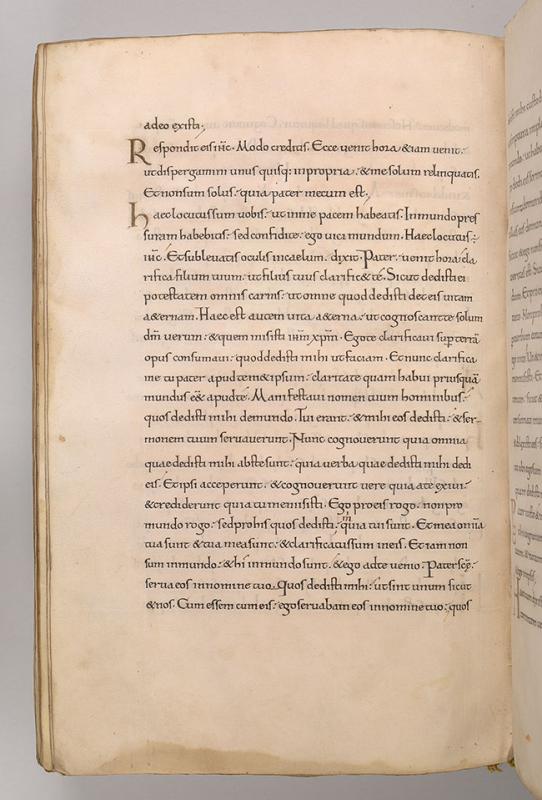 adeo existi.
Respondit eis ihc. Modo creditis. Ecce venit hora & iam venit.
ut dispergamini unus quisq; in propria. & me solum relinquatis.
Et non sum solus. quia pater mecum est.
haec locutus sum vobis. ut in me pacem habeatis. In mundo pres
suram habebitis. sed confidite. ego vici mundum. Haec locutus
ihc. Et sublevatis oculis in caelum. dixit. Pater. venit hora. cla
rifica filium tuum. ut filius tuus clarific& te. Sicut dedisti ei
potestatem omnis carnis. ut omne quod dedisti det eis vitam
aeternam. Haec est autem vita aeterna. ut cognoscant te solum
dm verum. & quem misisti ihm xpm. Ego te clarificavi sup terrā
opus consumavi. quod dedisti mihi ut faciam. Et nunc clarifica
me tu pater apud tem&ipsum. claritate quam habui priusquā
mundus e& apud te. Manifestavi nomen tuum hominibus.
quos dedisti mihi de mundo. Tui erant. & mihi eos dedisti. & ser-
monem tuum servaverunt. Nunc cognoverunt quia omnia
quae dedisti mihi abs te sunt. quia verba quae dedisti mihi dedi
eis. Et ipsi acceperunt. & cognoverunt vere quia a te exivi.
& crediderunt quia tu me misisti. Ego pro eis rogo. non pro
mundo rogo. sed pro his quos dedisti mi quia tui sunt. Et mea omīa
tua sunt & tua mea sunt. & clarificatus sum in eis. Et iam non
sum in mundo. & hi in mundo sunt. & ego ad te venio. Pater scē.
serva eos in nomine tuo. Quos dedisti mihi. ut sint unum sicut
& nos. Cum essem cum eis. ego servabam eos in nomine tuo. quos